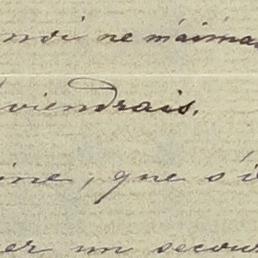 moi ne m'aimai
viendrais.
ine, que s'i
er un secour